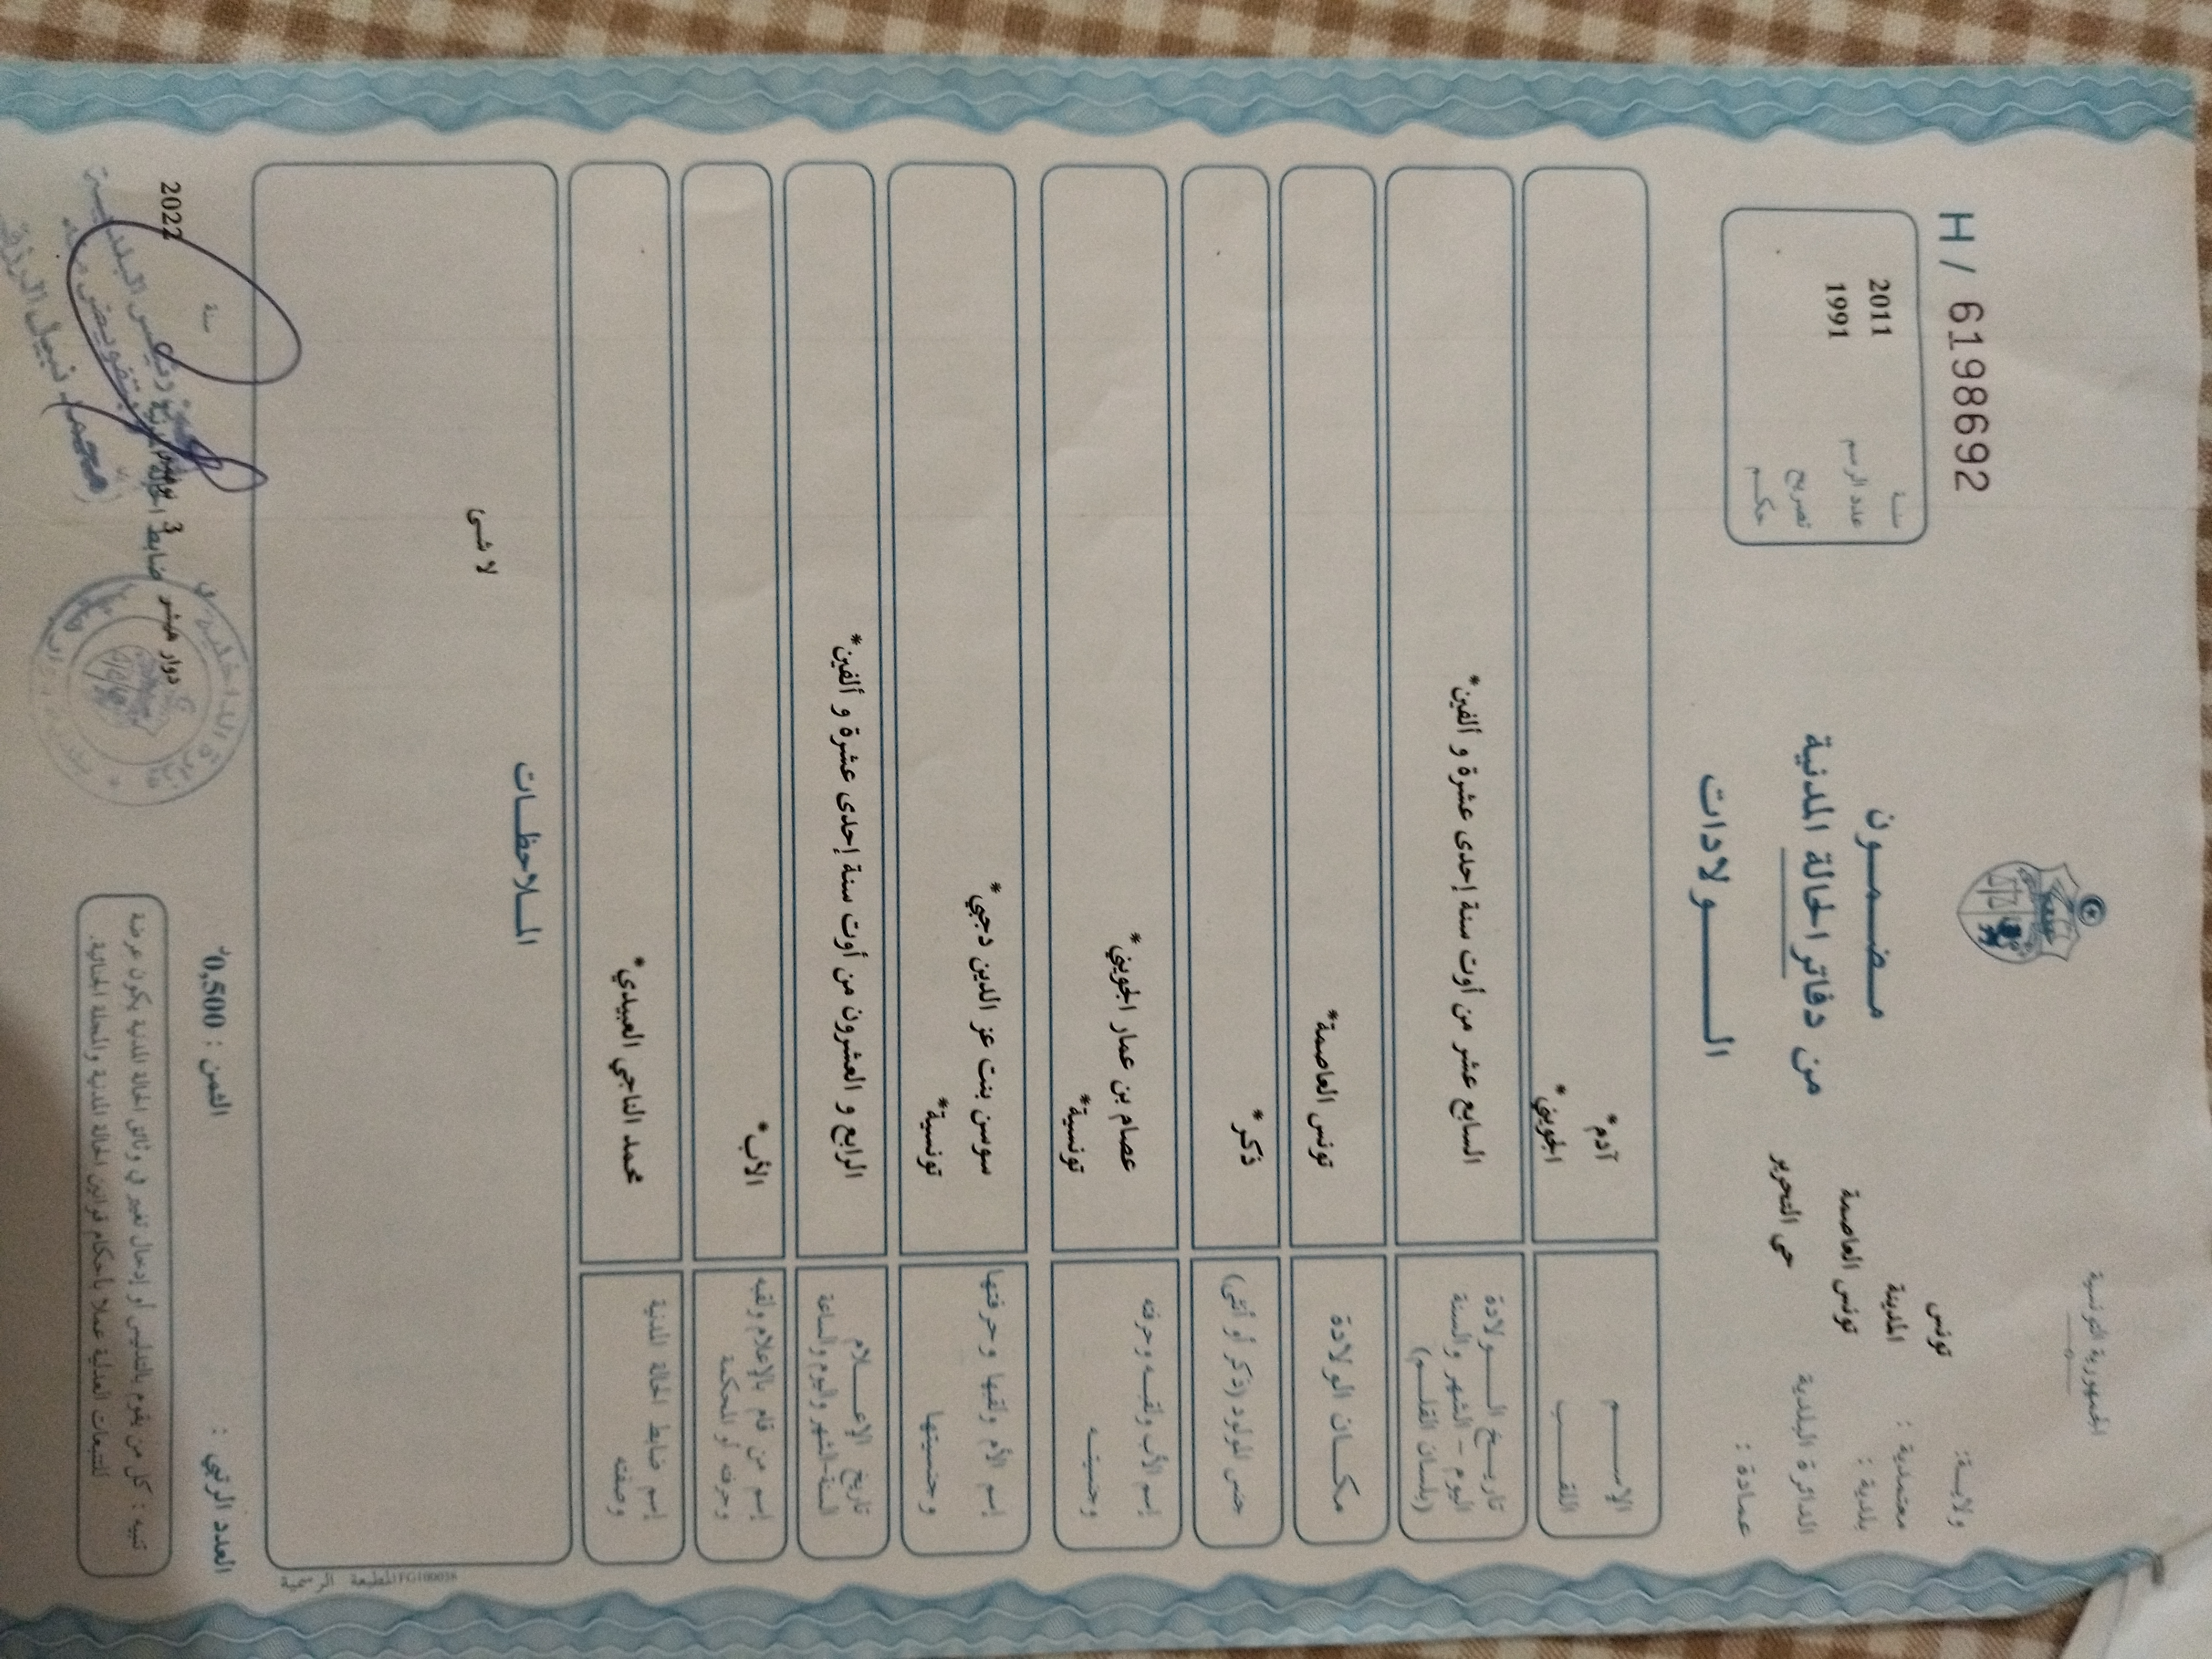 الجمهورية التونسية
ولاية: تونس
معتمدية : المدينة
بلدية : تونس العاصمة
الدائرة البلدية حي التحرير
عمادة :
مضمـــون
من دفاتر الحالة المدنية
الـــولادات
H / 6198692
سنة 2011
عدد الرسم 1991
تصريح
حكم
الإســـم آدم*
اللقـــب الجويني*
تاريـخ الـــولادة
اليوم - الشهر والسنة
(بلسان القلـم)
السابع عشر من أوت سنة إحدى عشرة و ألفين*
مكـــان الولادة تونس العاصمة*
جنس المولود (ذكر أو أنثى) ذكر*
إسم الأب ولقبـه وحرفته عصام بن عمار الجويني*
وجنسيتـه تونسية*
إسم الأم ولقبها وحرفتها سوسن بنت عز الدين دجبي*
وجنسيتها تونسية*
تاريخ الإعـــلام
السنة-الشهر واليوم والساعة
الرابع و العشرون من أوت سنة إحدى عشرة و ألفين*
إسم من قام بالإعلام ولقبه
وحرفته أو المحكمة
الأب*
إسم ضابط الحالة المدنية
وصفته
محمد الناجي العبيدي*
المـلاحظـــات
لا شـئ
المطبعة الرسمية FG100038
العدد الرتبي :
الثمن : 0,500د
دوار هيشر 3
سنة 2022
ضابط الحالة المدنية
محمد نبيل
تنبيه : كل من يقوم بالتدليس أو إدخال تغيير في وثائق الحالة المدنية يكون عرضة
للتتبعات العدلية عملا بأحكام قوانين الحالة المدنية والمجلة الجنائية.